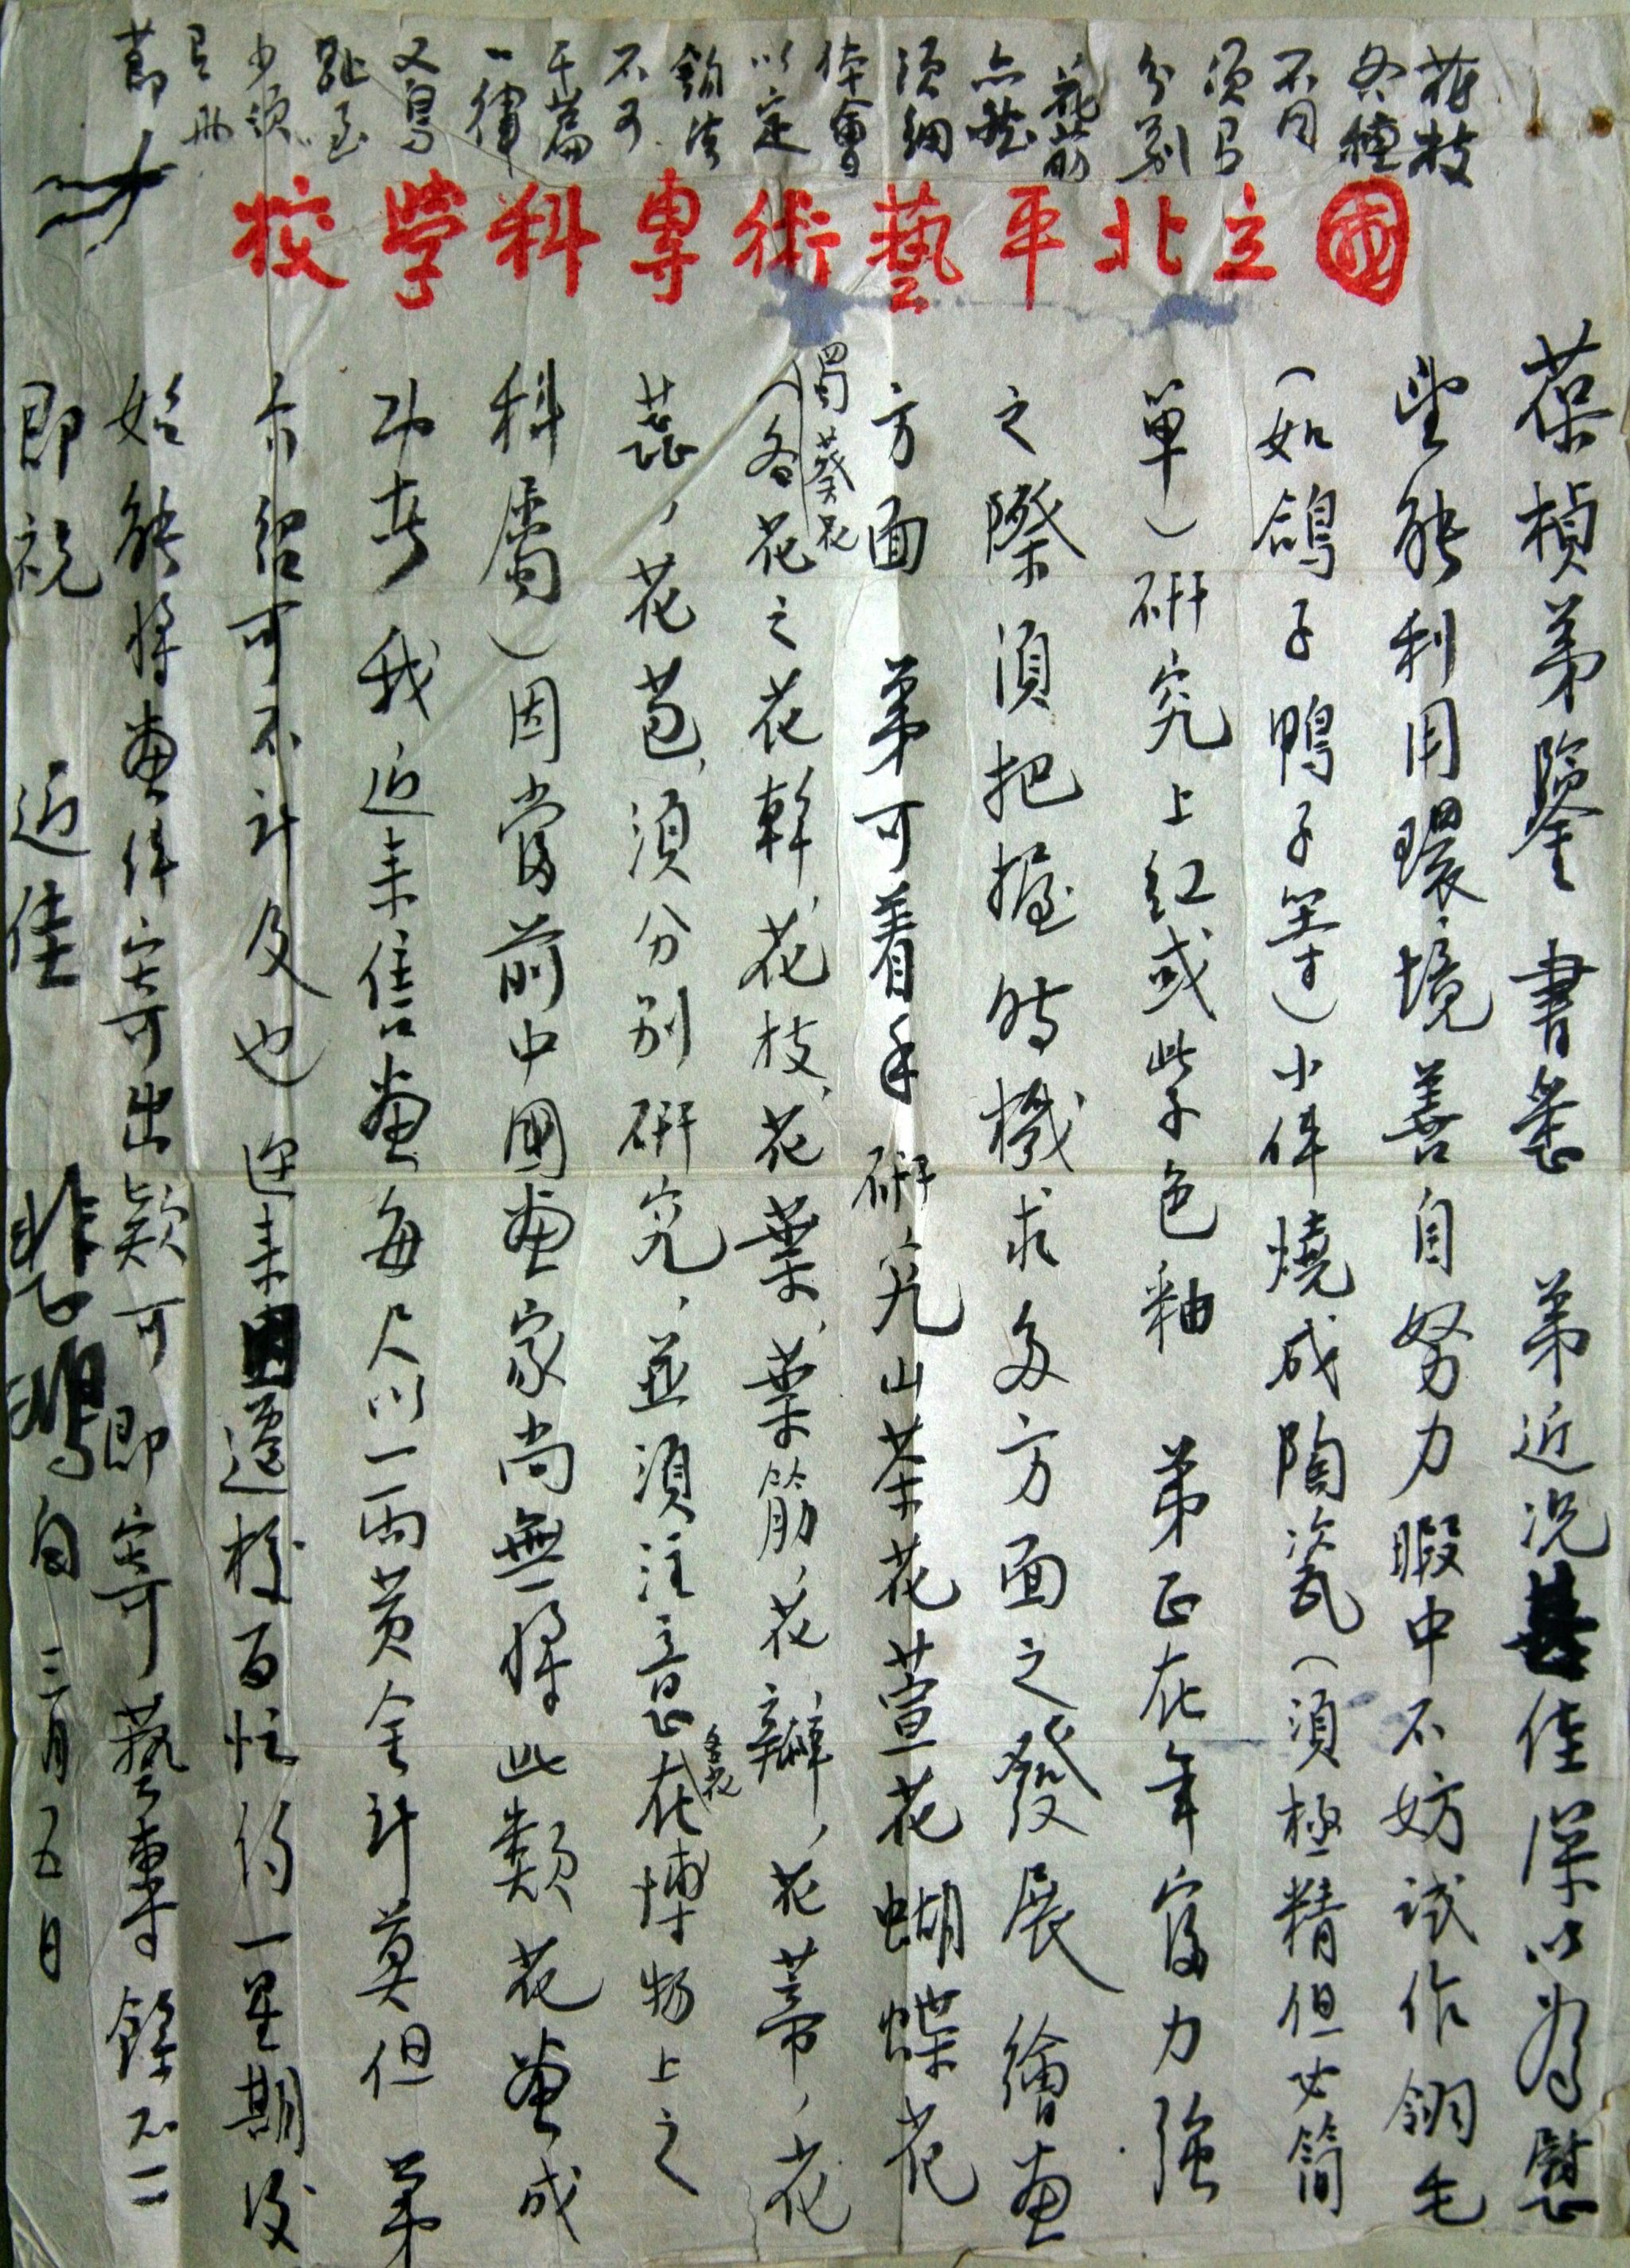 花枝
各種
不同
須另
分別
花筋
亦然
須細
体會
以定
鈎法
不可
千篇
一律
又鳥
趾至
少須
節
國立北平藝術專科學校
葆楨弟鑒 書悉 弟近况甚佳深以為慰
望能利用環境善自努力暇中不妨試作翎毛
(如鴿子鴨子等)小件燒成陶瓷(須極精但必簡
單)研究上紅或紫色釉 弟正在年富力強
之際須把握時機求多方面之發展 繪畫
方面 弟可着手研究山茶花萱花蝴蝶花
蜀葵花
(各花之花幹、花枝、花葉、葉筋、花瓣、花蒂、花
蕊、花苞、須分別研究、並須注意在博物上之
科屬)因當前中國畫家尚無將此類花畫成
功者 我近来售畫每尺以一兩黄金計算但 弟
介紹可不計及也 近来因遷校百忙約一星期後
始能將畫件寄出款可即寄藝專餘不一
即祝 近佳 悲鴻白 三月五日